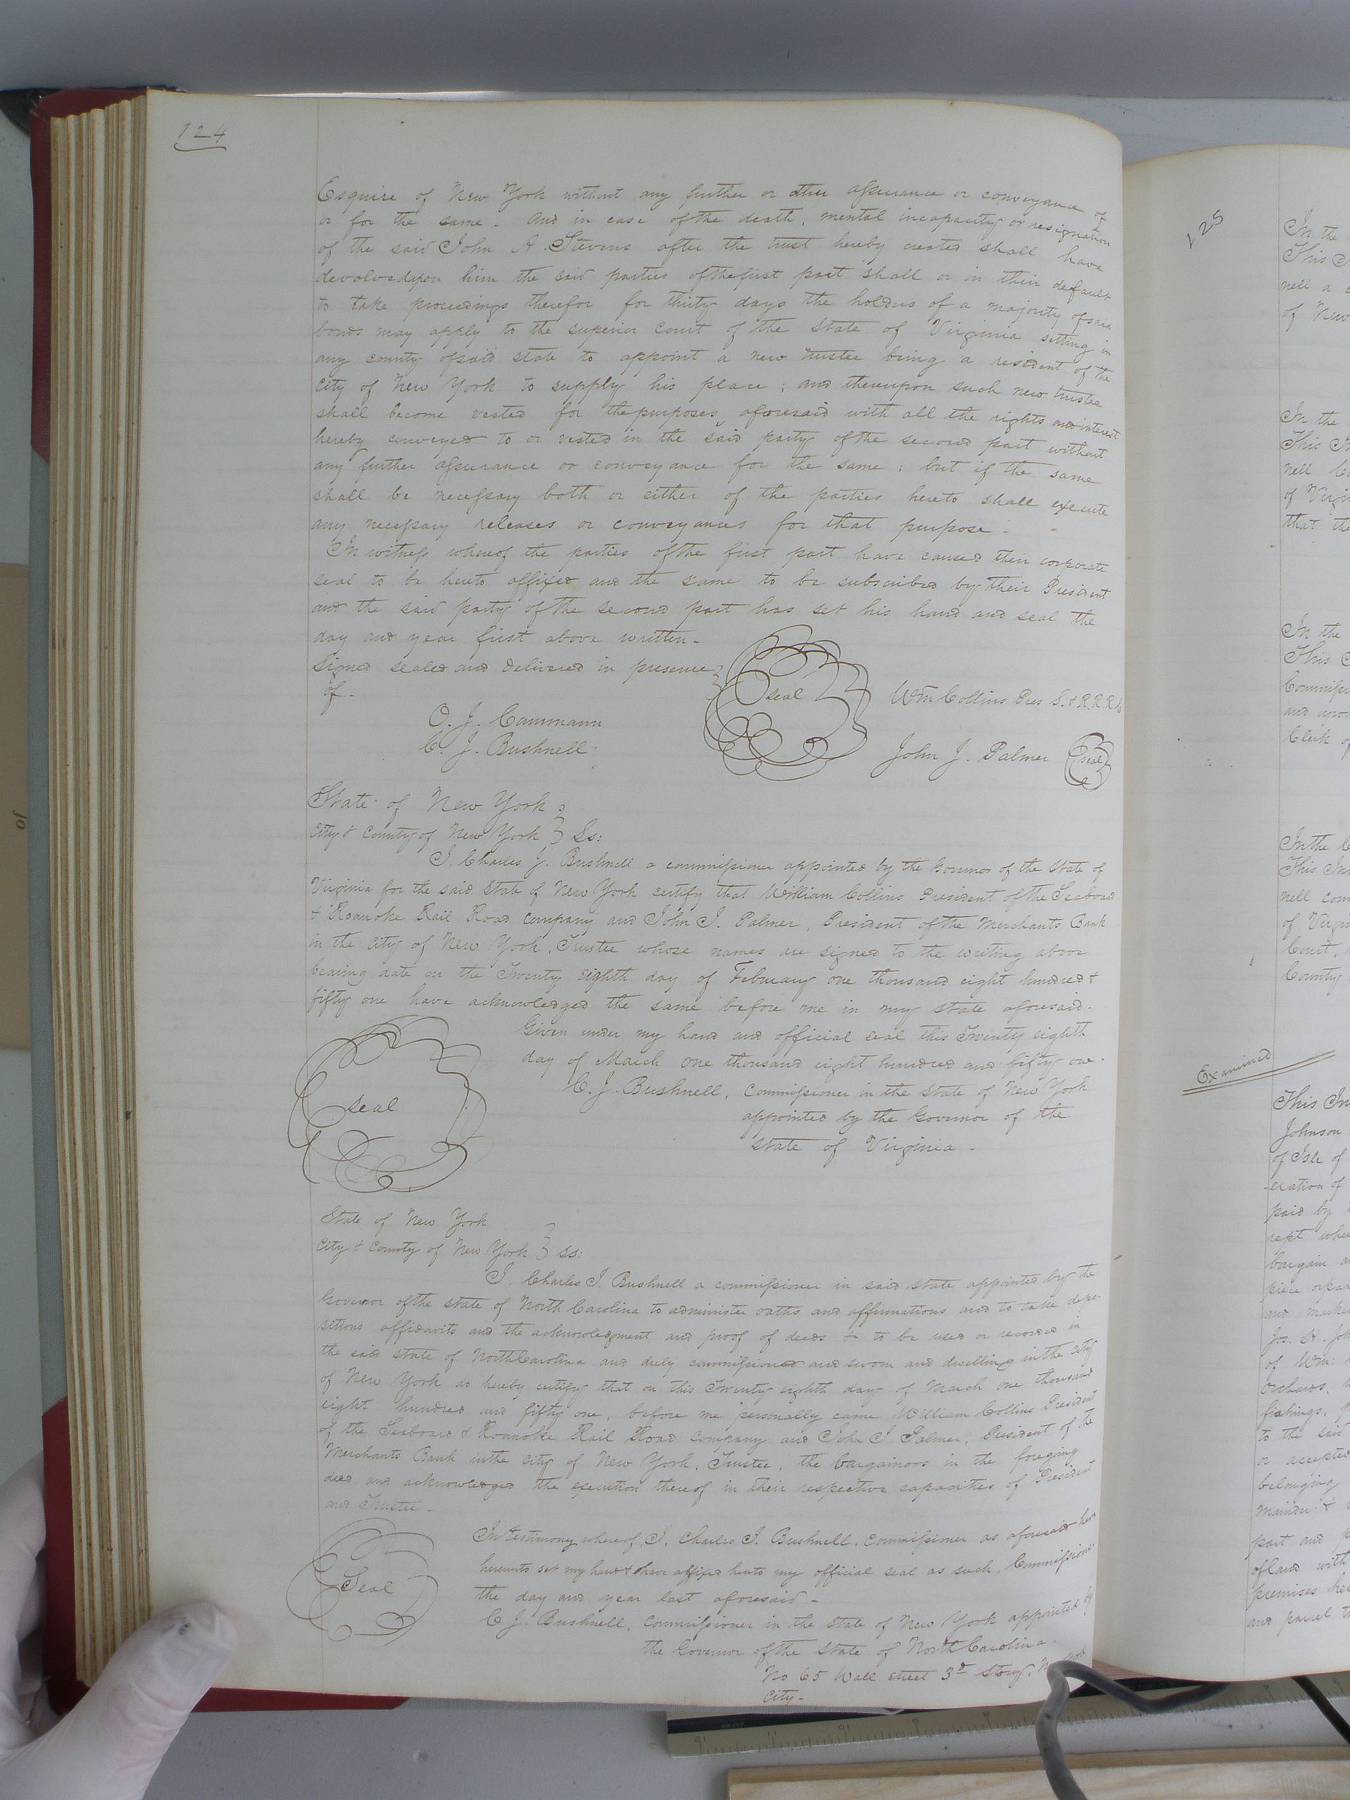 124
Esquire of New York without any further or other assurance or conveyance of
or for the same. And in case of the death, mental incapacity or resignation
of the said John A. Stevens after the trust hereby created shall have
devolved upon him the said parties of the first part shall or in their default
to take proceedings therefor for thirty days the holders of a majority of said
bonds may apply to the superior court of the State of Virginia sitting in
any county of said state to appoint a new trustee being a resident of the
City of New York to supply his place; and thereupon such new trustee
shall become vested for the purposes aforesaid with all the rights and interest
hereby conveyed to or vested in the said party of the second part without
any further assurance or conveyance for the same; but if the same
shall be necessary both or either of the parties hereto shall execute
any necessary releases or conveyances for that purpose.
In witness whereof the parties of the first part have caused their corporate
seal to be hereto affixed and the same to be subscribed by their President
and the said party of the second part has set his hand and seal the
day and year first above written.
Signed sealed and delivered in presence
of.
seal
Wm Collins Pres S. & R. R. R.
O. J. Cammann
C. J. Bushnell
John J. Palmer seal
State of New York
City & County of New York } Ss:
I. Charles J. Bushnell a commissioner appointed by the Governor of the State of
Virginia for the said State of New York certify that William Collins President of the Seaboard
& Roanoke Rail Road Company and John J. Palmer, President of the Merchants Bank
in the City of New York, Trustee whose names are signed to the writing above
bearing date on the Twenty eighth day of February one thousand eight hundred &
fifty one have acknowledged the same before me in my state aforesaid.
Given under my hand and official seal this Twenty eighth
day of March one thousand eight hundred and fifty one.
seal
C. J. Bushnell, Commissioner in the State of New York
appointed by the Governor of the
State of Virginia.
State of New York
City & County of New York } Ss:
I. Charles J. Bushnell a commissioner in said state appointed by the
Governor of the State of North Carolina to administer oaths and affirmations and to take depo-
sitions affidavits and the acknowledgment and proof of deeds & to be used or recorded in
the said State of North Carolina and duly commissioned and sworn and dwelling in the City
of New York do hereby certify that on this Twenty eighth day of March one thousand
eight hundred and fifty one, before me personally came William Collins President
of the Seaboard & Roanoke Rail Road Company and John J Palmer, President of the
Merchants Bank in the City of New York, Trustee, the bargainors in the foreging
deed and acknowledged the execution thereof in their respective capacities of President
and Trustee.
In testimony whereof, I, Charles J. Bushnell, Commissioner as aforesaid have
hereunto set my hand & have affixed hereto my official seal as such, Commissioner
the day and year last aforesaid.
Seal
C J. Bushnell, Commissioner in the State of New York appointed by
the Governor of the State of North Carolina.
No 65 Wall street 3d Story,
City.
125
In the
This
nell a
of New
In the
This
nell
of Virgi
that the
In the
This
Commissi
and
Clerk of
In the
This In
nell com
of Virgi
Court,
County
Examined
This In
Johnson
of Isle of
eration of
paid by
rept
bargain
piece
and
Jos.
of Wm
orchards,
fishings,
to the sai
or accepted
belonging
part and
of land with
premises her
and parcel